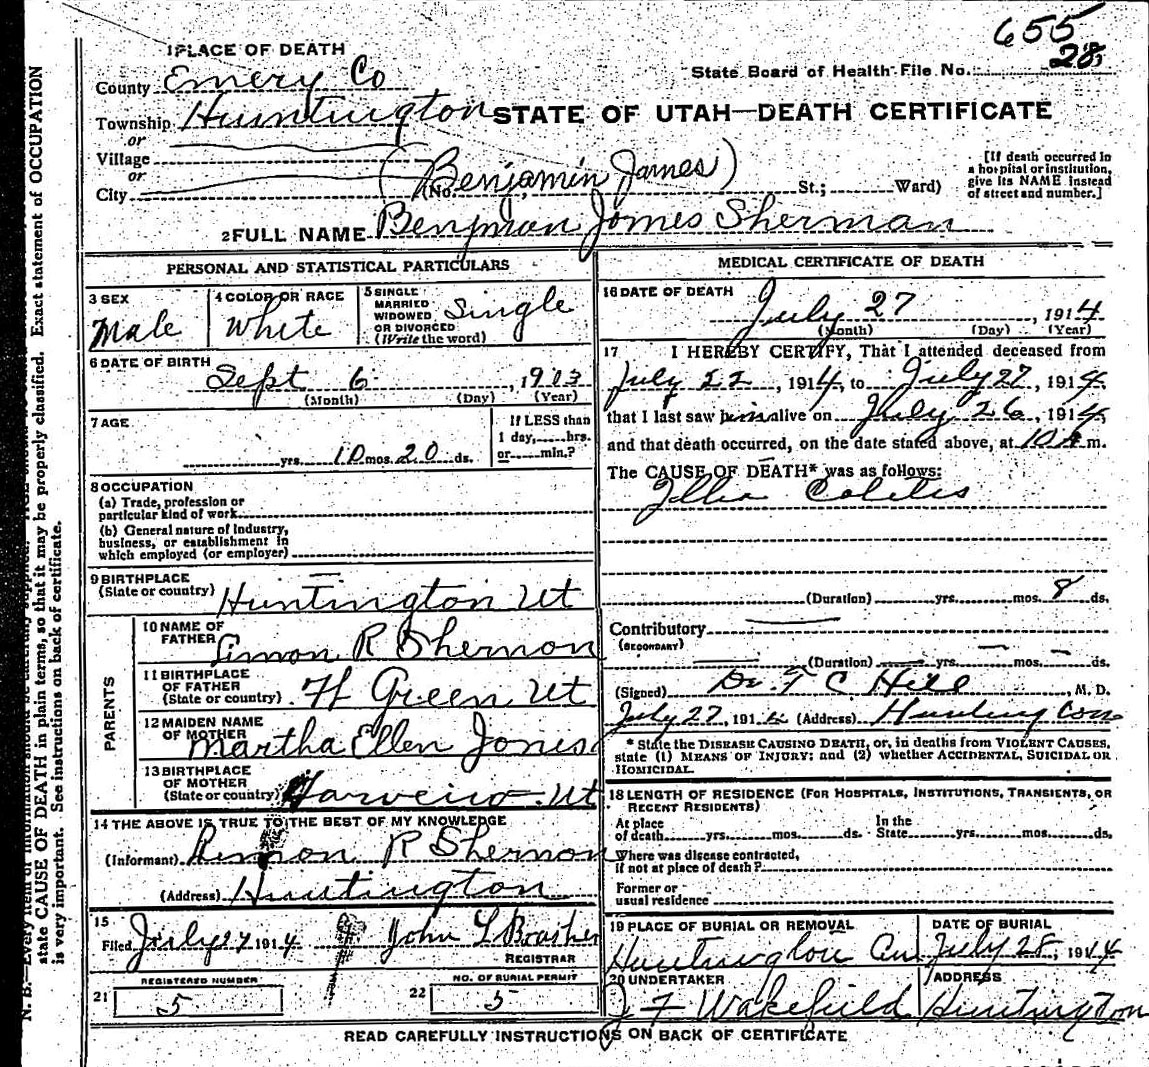 655
28
1 PLACE OF DEATH
State Board of Health File No.
County Emery Co
Township Huntington
STATE OF UTAH—DEATH CERTIFICATE
or
Village
or
City
(No. (Benjamin James) St.; Ward)
[If death occurred in
a hospital or institution,
give its NAME instead
of street and number.]
2 FULL NAME Benjman James Sherman
PERSONAL AND STATISTICAL PARTICULARS
3 SEX
Male
4 COLOR OR RACE
White
5 SINGLE
MARRIED
WIDOWED
OR DIVORCED
(Write the word)
Single
6 DATE OF BIRTH
Sept 6, 1913
(Month) (Day) (Year)
7 AGE
yrs. 10 mos. 20 ds.
If LESS than
1 day, hrs.
or min.?
8 OCCUPATION
(a) Trade, profession or
particular kind of work
(b) General nature of Industry,
business, or establishment in
which employed (or employer)
9 BIRTHPLACE
(State or country) Huntington Ut
PARENTS
10 NAME OF
FATHER Simon R Shermon
11 BIRTHPLACE
OF FATHER
(State or country) Ft Green Ut
12 MAIDEN NAME
OF MOTHER Martha Ellen Jones
13 BIRTHPLACE
OF MOTHER
(State or country) Ut
14 THE ABOVE IS TRUE TO THE BEST OF MY KNOWLEDGE
(Informant) Simon R Shermon
(Address) Huntington
15
Filed July 27 1914 John L Brasher
REGISTRAR
REGISTERED NUMBER
21 5
NO. OF BURIAL PERMIT
22 5
MEDICAL CERTIFICATE OF DEATH
16 DATE OF DEATH
July 27, 1914
(Month) (Day) (Year)
17 I HEREBY CERTIFY, That I attended deceased from
July 22, 1914, to July 27, 1914,
that I last saw him alive on July 26, 1914,
and that death occurred, on the date stated above, at 10 A m.
The CAUSE OF DEATH* was as follows:
Illio Colitis
(Duration) yrs. mos. 8 ds.
Contributory
(SECONDARY)
(Duration) yrs. mos. ds.
(Signed) Dr T C Hill, M. D.
July 27, 1914 (Address) Huntington
* State the DISEASE CAUSING DEATH, or, in deaths from VIOLENT CAUSES,
state (1) MEANS OF INJURY; and (2) whether ACCIDENTAL, SUICIDAL OR
HOMICIDAL.
18 LENGTH OF RESIDENCE (FOR HOSPITALS, INSTITUTIONS, TRANSIENTS, OR
RECENT RESIDENTS)
At place
of death yrs. mos. ds.
In the
State yrs. mos. ds.
Where was disease contracted,
if not at place of death?
Former or
usual residence
19 PLACE OF BURIAL OR REMOVAL
Huntington Cem
DATE OF BURIAL
July 28, 1914
20 UNDERTAKER
J F Wakefield
ADDRESS
Huntington
READ CAREFULLY INSTRUCTIONS ON BACK OF CERTIFICATE
N. B.—Every item of information should be carefully supplied. Exact statement of OCCUPATION
state CAUSE OF DEATH in plain terms, so that it may be properly classified.
is very important. See instructions on back of certificate.